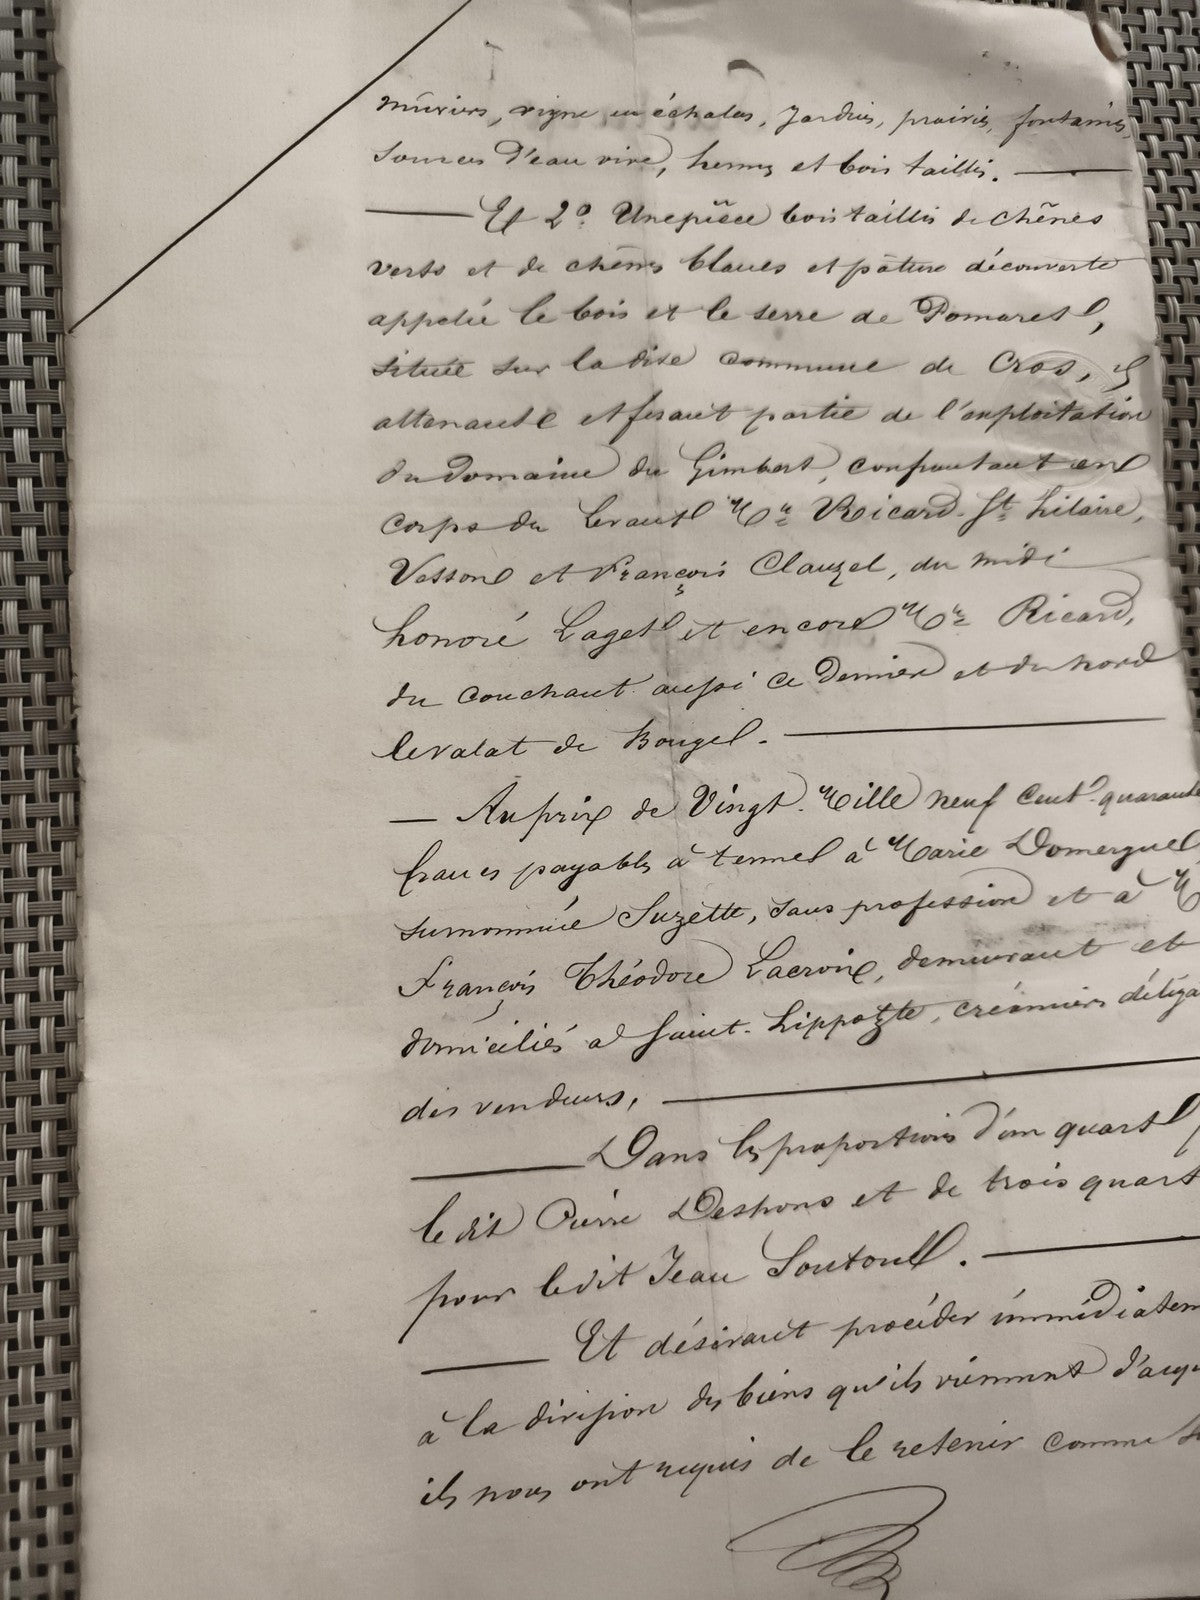 mûriers, vigne en échalas, Jardin, prairies, fontaines,
sources d'eau vive, hermes et bois taillis.
Et 2° Une pièce bois taillis de chênes
verts et de chênes blancs et pâture découverte
appelée le bois et le serre de Pomaret,
située sur la dite commune de Cros, et
attenante et ferant partie de l'exploitation
du domaine du Gimbert, confrontant en
corps du levant Mr Ricard St hilaire,
Vesson et François Clauzel, du midi
honoré Laget et encore Mr Ricard,
du couchant aussi ce dernier et du nord
le valat de Bouzel.
Au prix de Vingt-Mille neuf Cent quarante
francs payables à terme à Marie Domergue
surnommée Suzette, sans profession et à M
François Théodore Lacroix, demeurant et
domiciliés à Saint-hippolyte, créanciers déléga
des vendeurs,
Dans les proportions d'un quart p
ledit Pierre Deshons et de trois quart
pour ledit Jean Soutoul.
Et désirant procéder immédiatem
à la division des biens qu'ils viennent d'acqu
ils nous ont requis de le retenir comme